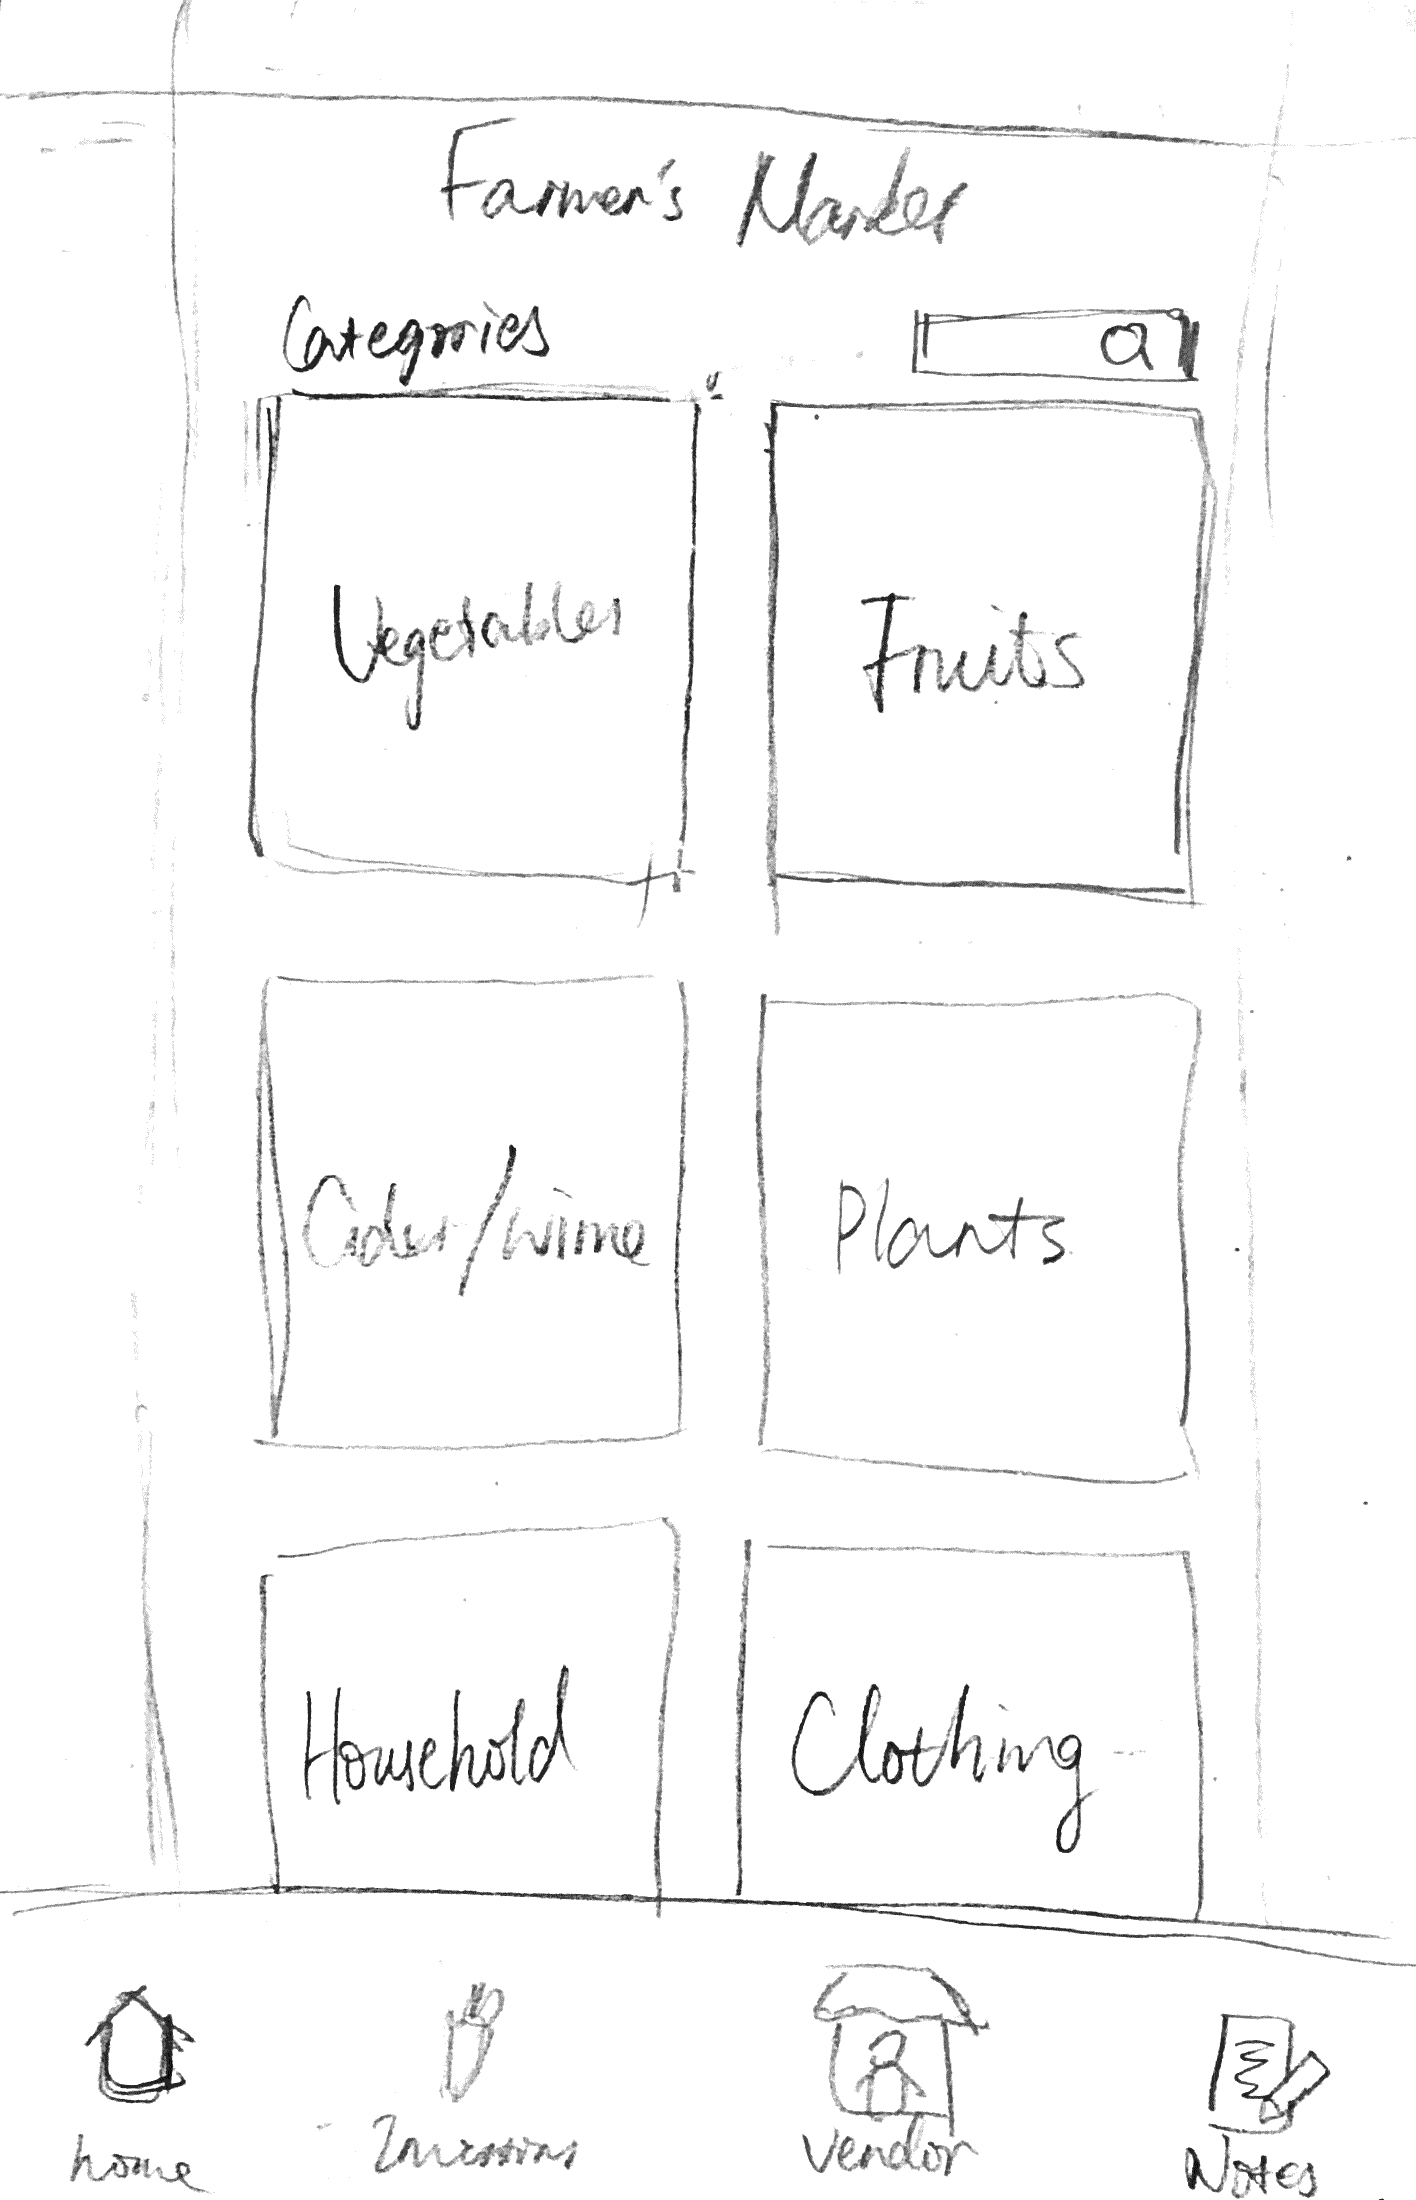 Farmer's Market
Categories
Vegetables
Fruits
Cider/wine
Plants
Household
Clothing
home
Vendor
Notes